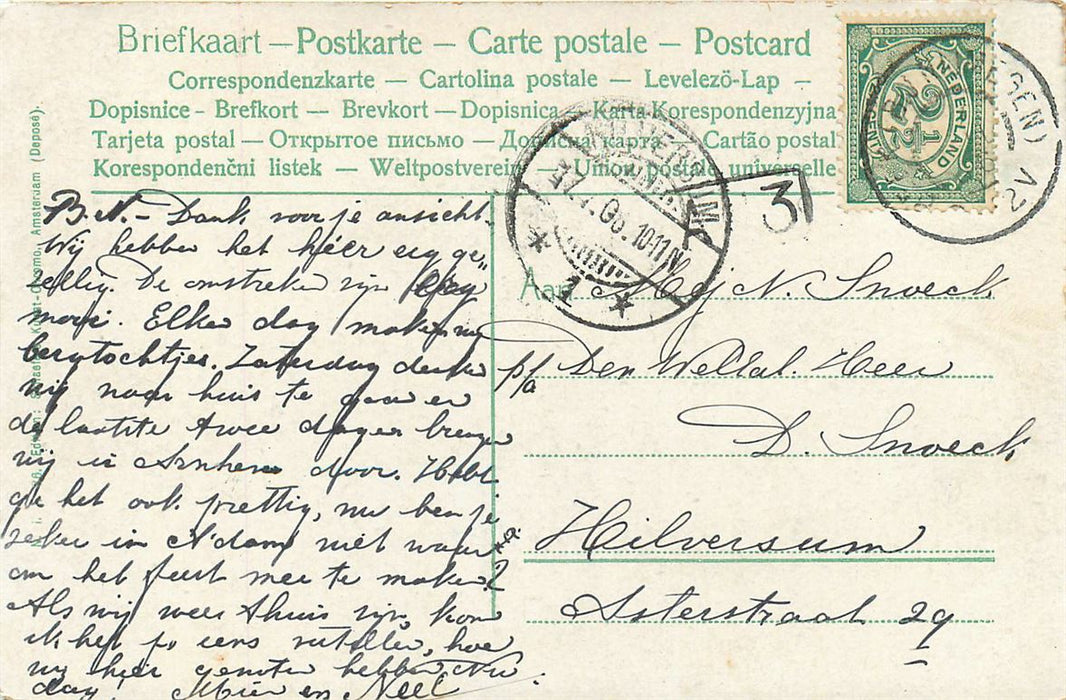 Briefkaart – Postkarte – Carte postale – Postcard
Correspondenzkarte – Cartolina postale – Levelezö-Lap –
Dopisnice - Brefkort – Brevkort – Dopisnica – Karta Korespondenzyjna
Tarjeta postal – Открытое письмо – Дописна карта Cartão postal
Korespondenčni listek – Weltpostverein – Union postale universelle
NEDERLAND
2½
CENT
HILVERSUM
27.7.06.10-11N
1
3
B.N. – Dank voor je ansicht.
Wij hebben het hier erg ge„
zellig. De omstreken zijn erg
mooi. Elken dag maken wij
bergtochtjes. Zaterdag denken
wij naar huis te gaan en
de laatste twee dagen brengen
wij in Arnhem door. Hebt
ge het ook prettig, nu ben je
zeker in A'dam niet waar
om het feest mee te maken?
Als wij weer thuis zijn, kom
ik het je eens vertellen, hoe
wij hier genoten hebben. Nu
dag! Mien en Neel.
Aan Mej N. Snoeck
p/a Den WelEd. Heer
D. Snoeck
Hilversum
Asterstraat 29
Amsterdam (Deposé).